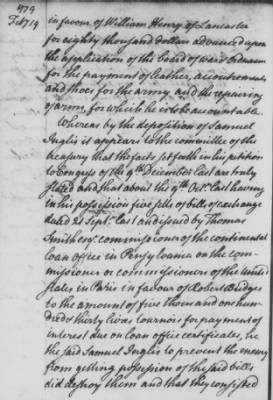 1779
Feb 19
in favour of William Henry of Lancaster
for eighty thousand dollars advanced upon
the application of the board of war & ordnance
for the payment of leather, accoutrements
and shoes for the army, and the repairing
of arms, for which he is to be accountable.
Whereas by the deposition of Samuel
Inglis it appears to the committee of the
treasury that the facts set forth in his petition
to Congress of the 9th December last are truly
stated and that about his 9th Octr. last having
in his possession five setts of bills of exchange
dated 21 Septr. last and issued by Thomas
Smith esqr. commissioner of the continental
loan office in Pensylvania on the com-
missioner or commissioners of the United
States in Paris in favour of Robert Bridges
to the amount of five thousand one hun-
dred & thirty livres tournois for payment of
interest due on loan office certificates, he
the said Samuel Inglis to prevent the enemy
from getting possession of the said bills,
did destroy them and that they consisted